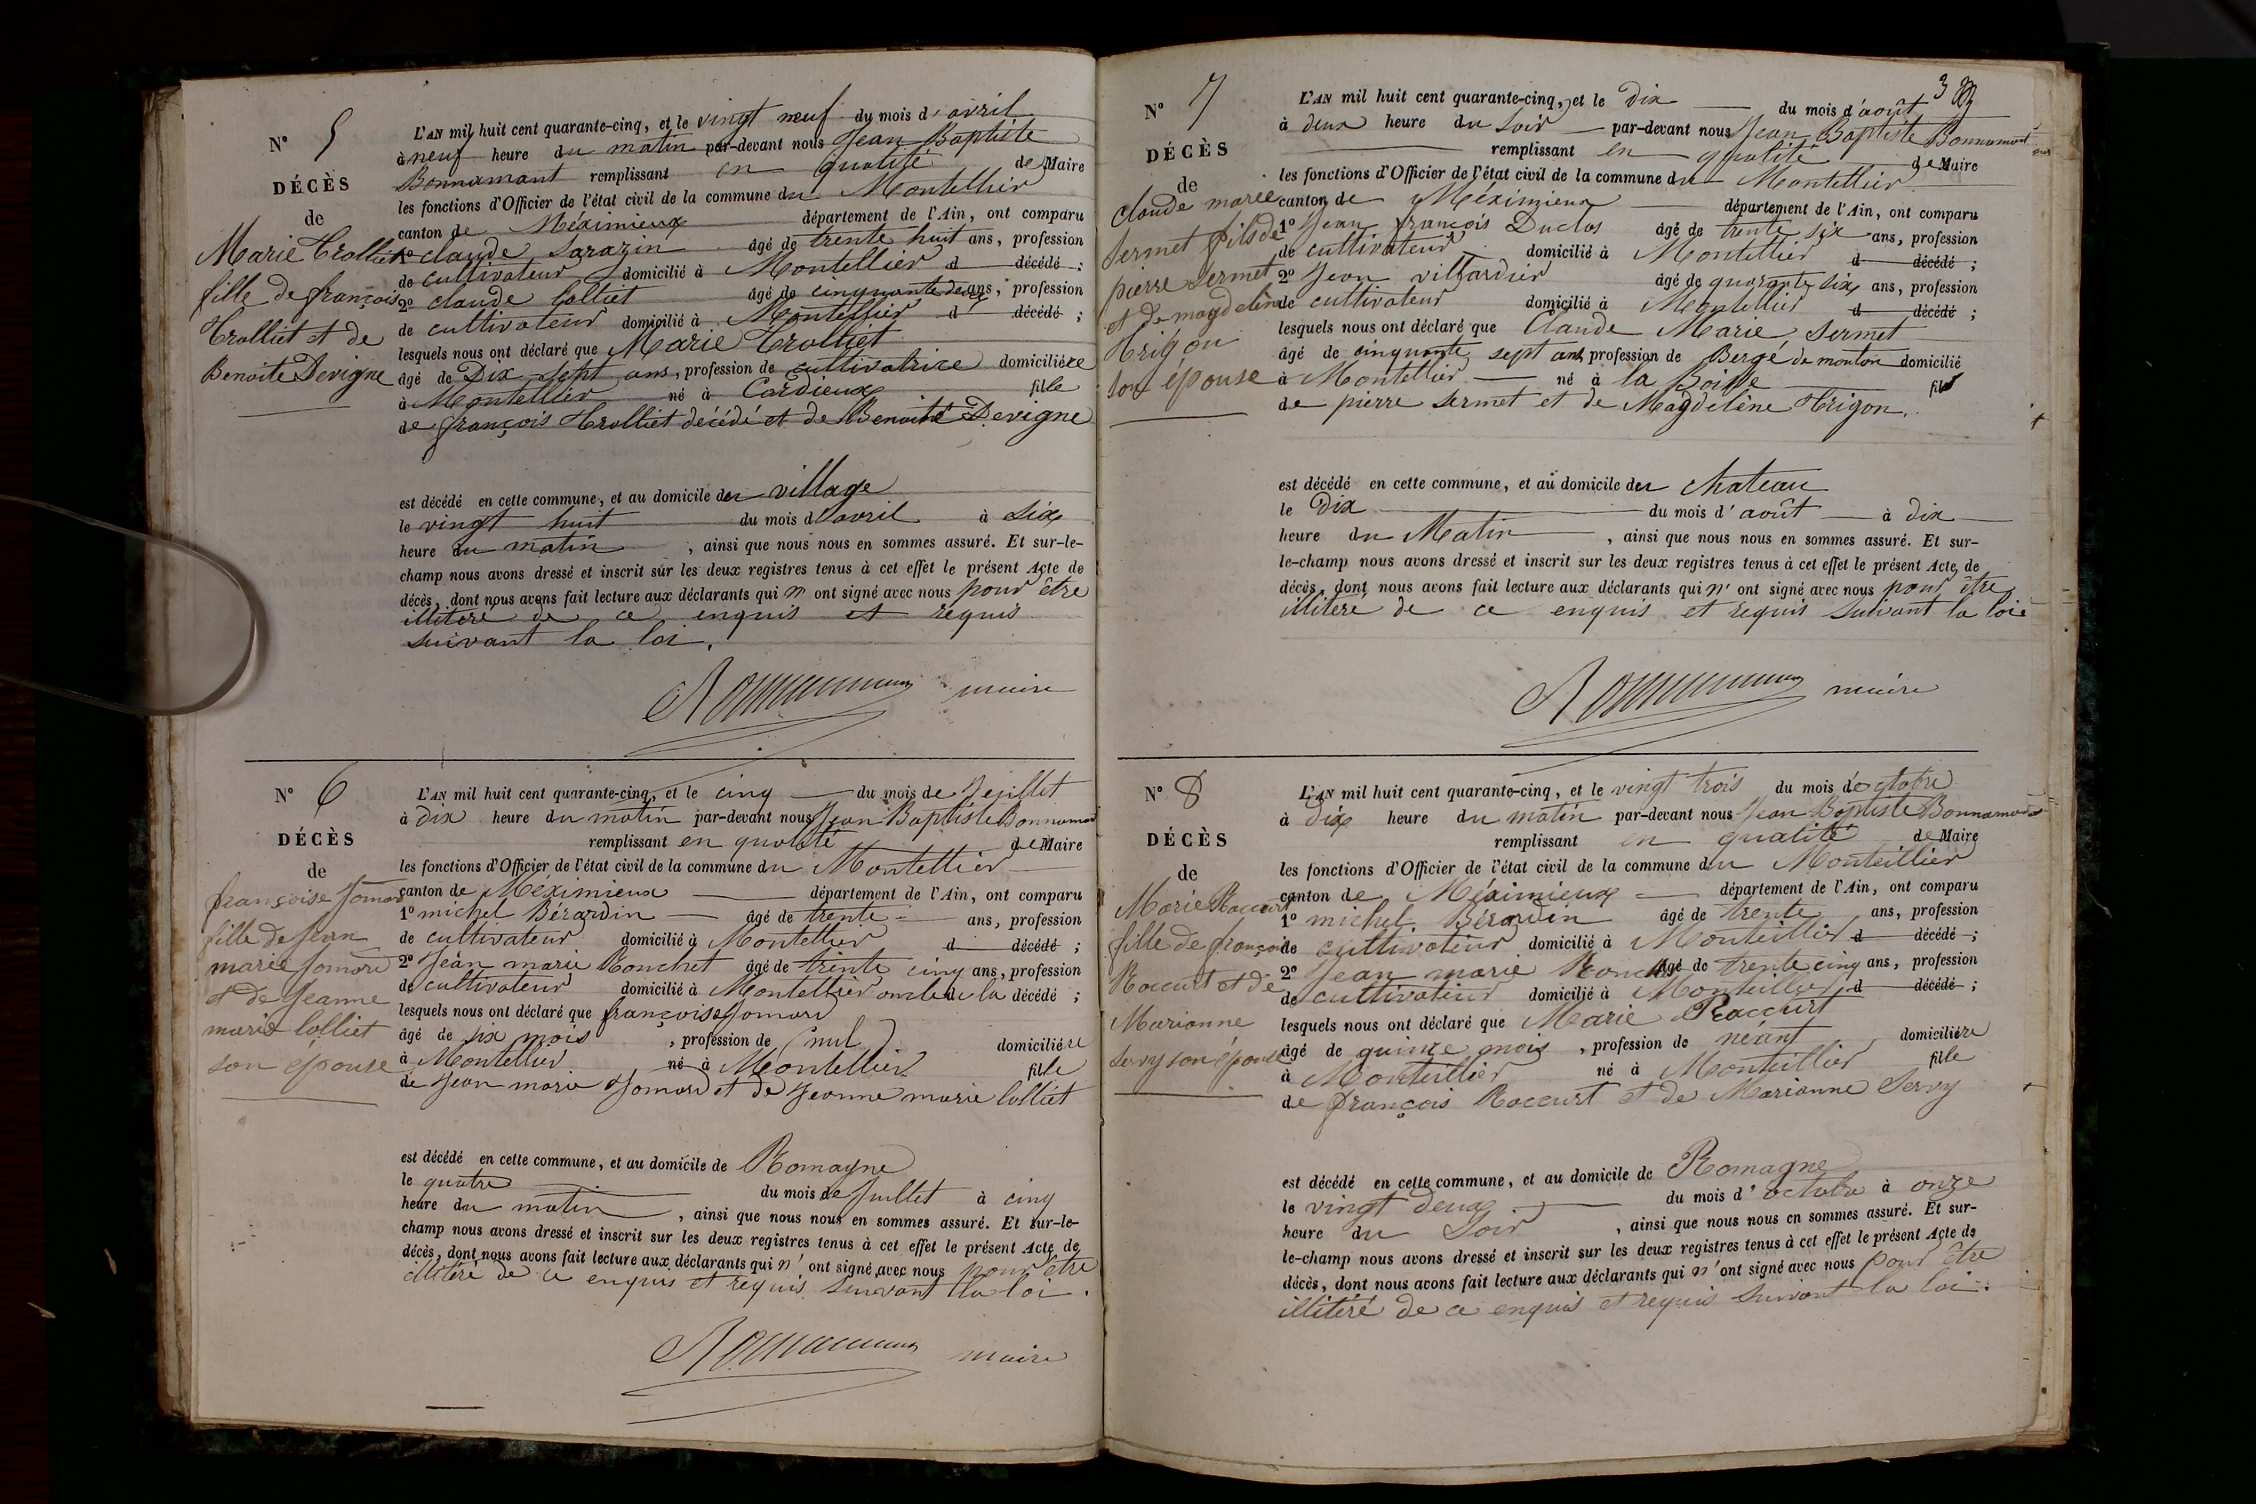 N° 5
DÉCÈS
de
Marie Trolliet
fille de françois
Trolliet et de
Benoite Devigne
L'AN mil huit cent quarante-cinq, et le vingt neuf du mois d'avril
à neuf heure du matin par-devant nous Jean Baptiste
Bonnamant remplissant en qualité de Maire
les fonctions d'Officier de l'état civil de la commune du Montellier
canton de Méximieux département de l'Ain, ont comparu
1° claude Sarazin âgé de trente huit ans, profession
de cultivateur domicilié à Montellier d décédé ;
2° claude Colliet âgé de cinquante deux ans, profession
de cultivateur domicilié à Montellier d décédé ;
lesquels nous ont déclaré que Marie Trolliet
âgé de Dix sept ans, profession de cultivatrice domicilière
à Montellier né à Cordieux fille
de françois Trolliet décédé et de Benoite Devigne
est décédé en cette commune, et au domicile du village
le vingt huit du mois d'avril à six
heure du matin , ainsi que nous nous en sommes assuré. Et sur-le-
champ nous avons dressé et inscrit sur les deux registres tenus à cet effet le présent Acte de
décès, dont nous avons fait lecture aux déclarants qui n' ont signé avec nous pour être
illitéré de ce enquis et requis
suivant la loi.
maire
N° 6
DÉCÈS
de
françoise Jomard
fille de Jean
marie Jomard
et de Jeanne
marie Colliet
son épouse
L'AN mil huit cent quarante-cinq, et le cinq du mois de Jeuillet
à dix heure du matin par-devant nous Jean Baptiste Bonnamant
remplissant en qualité de Maire
les fonctions d'Officier de l'état civil de la commune du Montellier
canton de Méximieux département de l'Ain, ont comparu
1° michel Bérardin âgé de trente ans, profession
de cultivateur domicilié à Montellier d décédé ;
2° Jean marie Ronchet âgé de trente cinq ans, profession
de cultivateur domicilié à Montellier oncle de la décédé ;
lesquels nous ont déclaré que françoise Jomard
âgé de six mois , profession de (nul) domicilière
à Montellier né à Montellier fille
de Jean marie Jomard et de Jeanne marie Colliet
est décédé en cette commune, et au domicile de Romagne
le quatre du mois de Juillet à cinq
heure du matin , ainsi que nous nous en sommes assuré. Et sur-le-
champ nous avons dressé et inscrit sur les deux registres tenus à cet effet le présent Acte de
décès, dont nous avons fait lecture aux déclarants qui n' ont signé avec nous pour être
illitéré de ce enquis et requis suivant la loi.
maire
N° 7
DÉCÈS
de
Claude marie
Sermet fils de
pierre Sermet
et de magdelène
Trigon
son épouse
L'AN mil huit cent quarante-cinq, et le Dix du mois d'août
à deux heure du soir par-devant nous Jean Baptiste Bonnamant
remplissant en qualité de Maire
les fonctions d'Officier de l'état civil de la commune du Montellier
canton de Méximieux département de l'Ain, ont comparu
1° Jean françois Duclos âgé de trente six ans, profession
de cultivateur domicilié à Montellier d décédé ;
2° Jean villardier âgé de quarante six ans, profession
de cultivateur domicilié à Montellier d décédé ;
lesquels nous ont déclaré que Claude Marie Sermet
âgé de cinquante sept ans, profession de Bergé de mouton domicilié
à Montellier né à la Boisse fils
de pierre Sermet et de Magdelène Trigon.
est décédé en cette commune, et au domicile du chateau
le Dix du mois d'août à dix
heure du Matin , ainsi que nous nous en sommes assuré. Et sur-
le-champ nous avons dressé et inscrit sur les deux registres tenus à cet effet le présent Acte de
décès, dont nous avons fait lecture aux déclarants qui n' ont signé avec nous pour être
illitéré de ce enquis et requis suivant la loi
maire
N° 8
DÉCÈS
de
Marie Raccurt
fille de françois
Raccurt et de
Marianne
Servy son épouse
L'AN mil huit cent quarante-cinq, et le vingt trois du mois d'octobre
à dix heure du matin par-devant nous Jean Baptiste Bonnamant
remplissant en qualité de Maire
les fonctions d'Officier de l'état civil de la commune du Monteillier
canton de Méximieux département de l'Ain, ont comparu
1° michel Bérardin âgé de trente ans, profession
de cultivateur domicilié à Monteillier d décédé ;
2° Jean marie Ronchet âgé de trente cinq ans, profession
de cultivateur domicilié à Monteillier d décédé ;
lesquels nous ont déclaré que Marie Raccurt
âgé de quinze mois , profession de néant domicilière
à Monteillier né à Monteillier fille
de françois Raccurt et de Marianne Servy
est décédé en cette commune, et au domicile de Romagne
le vingt deux du mois d'octobre à onze
heure du Soir , ainsi que nous nous en sommes assuré. Et sur-
le-champ nous avons dressé et inscrit sur les deux registres tenus à cet effet le présent Acte de
décès, dont nous avons fait lecture aux déclarants qui n' ont signé avec nous pour être
illitéré de ce enquis et requis suivant la loi.